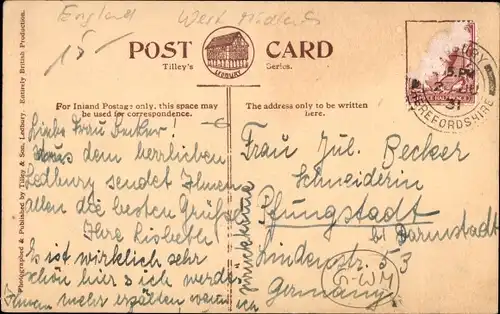 England
West Midlands
15
POST CARD
LEDBURY
Tilley's Series.
For Inland Postage only, this space may be used for correspondence.
The address only to be written here.
Photographed & Published by Tilley & Son, Ledbury. Entirely British Production.
5. PM
31
HEREFORDSHIRE
Liebe Frau Becker!
Aus dem herrlichen
Ledbury sendet Ihnen
allen die besten Grüße
Ihre Lisbeth
Es ist wirklich sehr
schön hier & ich werde
Ihnen mehr erzählen wenn ich
zurückkomme
Frau Jul. Becker
Schneiderin
Pfungstadt
bei Darmstadt
Lindenstr. 53
Germany
G-WM